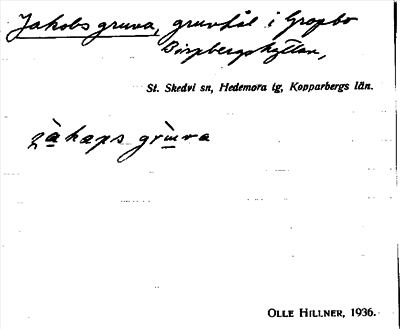 Jakobs gruva, gruvhål i Gropbo
Bispbergshyttan,
St. Skedvi sn, Hedemora tg, Kopparbergs län.
jàkaps grùva
OLLE HILLNER, 1936.